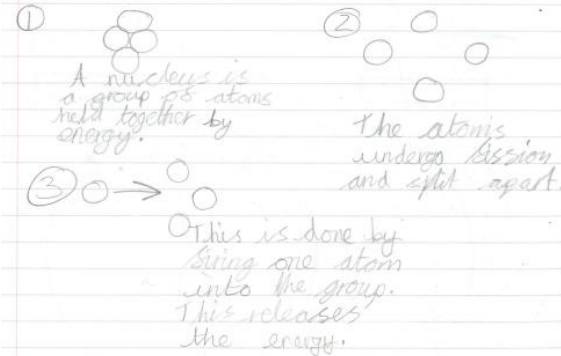 ①
A nucleus is
a group of atoms
held together by
energy.
②
The atoms
undergo fission
and split apart.
③
This is done by
firing one atom
into the group.
This releases
the energy.